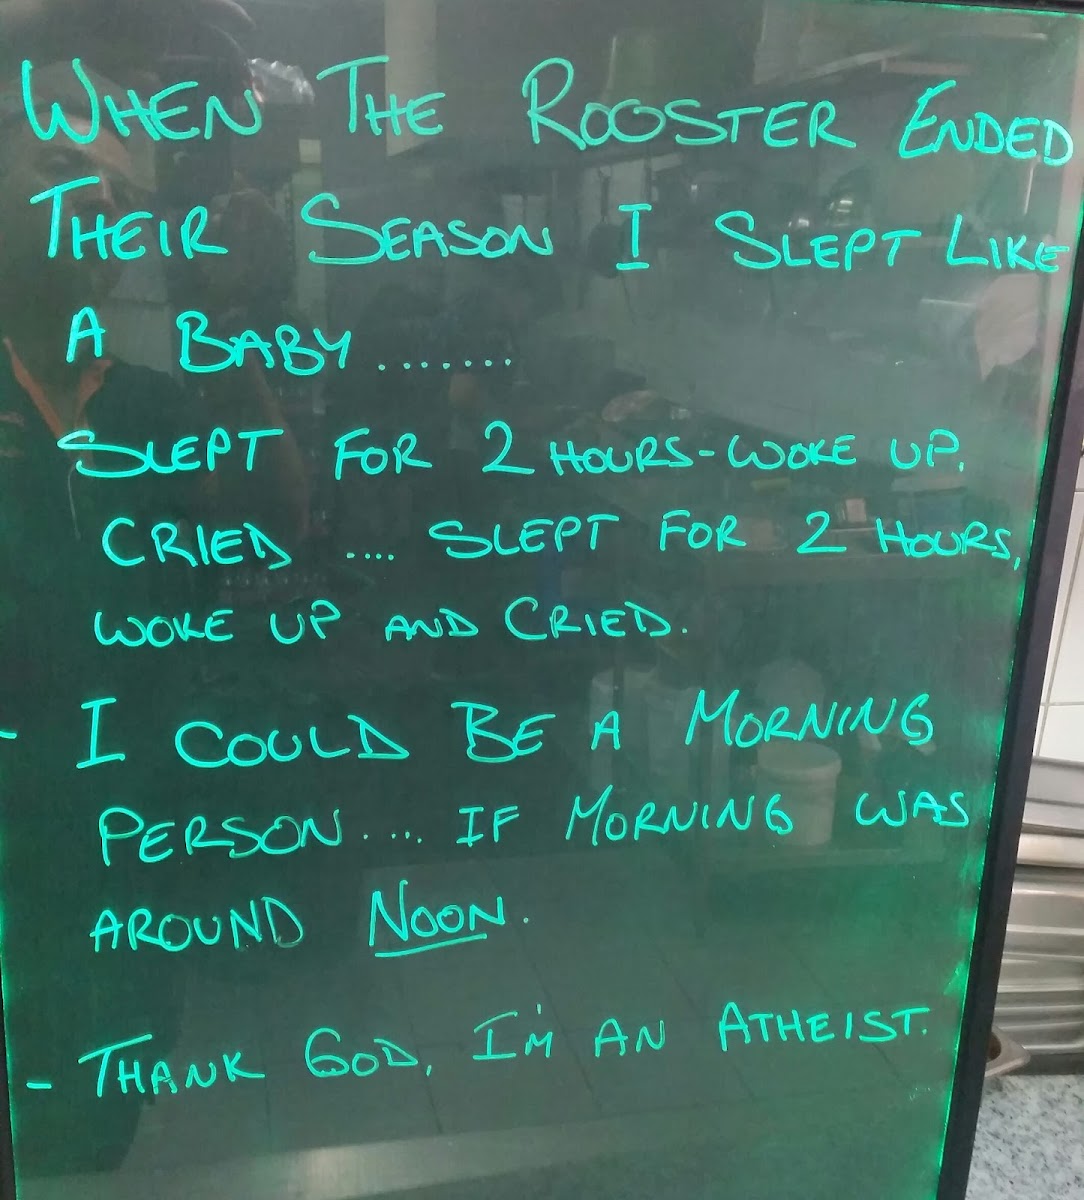 WHEN THE ROOSTER ENDED
THEIR SEASON I SLEPT LIKE
A BABY ........
SLEPT FOR 2 HOURS-WOKE UP.
CRIED .... SLEPT FOR 2 HOURS,
WOKE UP AND CRIED.
- I COULD BE A MORNING
PERSON .... IF MORNING WAS
AROUND NOON.
- THANK GOD, I'M AN ATHEIST.